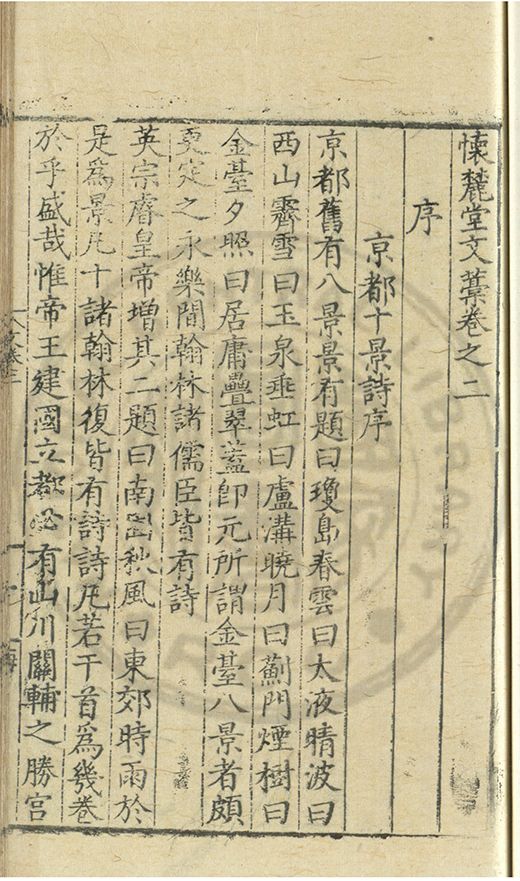 懷麓堂文藁卷之二
序
京都十景詩序
京都舊有八景景有題曰瓊島春雲曰太液晴波曰
西山霽雪曰玉泉垂虹曰盧溝曉月曰薊門煙樹曰
金臺夕照曰居庸疊翠葢即元所謂金臺八景者頗
更定之永樂間翰林諸儒臣皆有詩
英宗睿皇帝增其二題曰南囿秋風曰東郊時雨於
是爲景凡十諸翰林復皆有詩詩凡若干首爲幾卷
於乎盛哉惟帝王建國立都必有山川關輔之勝宮